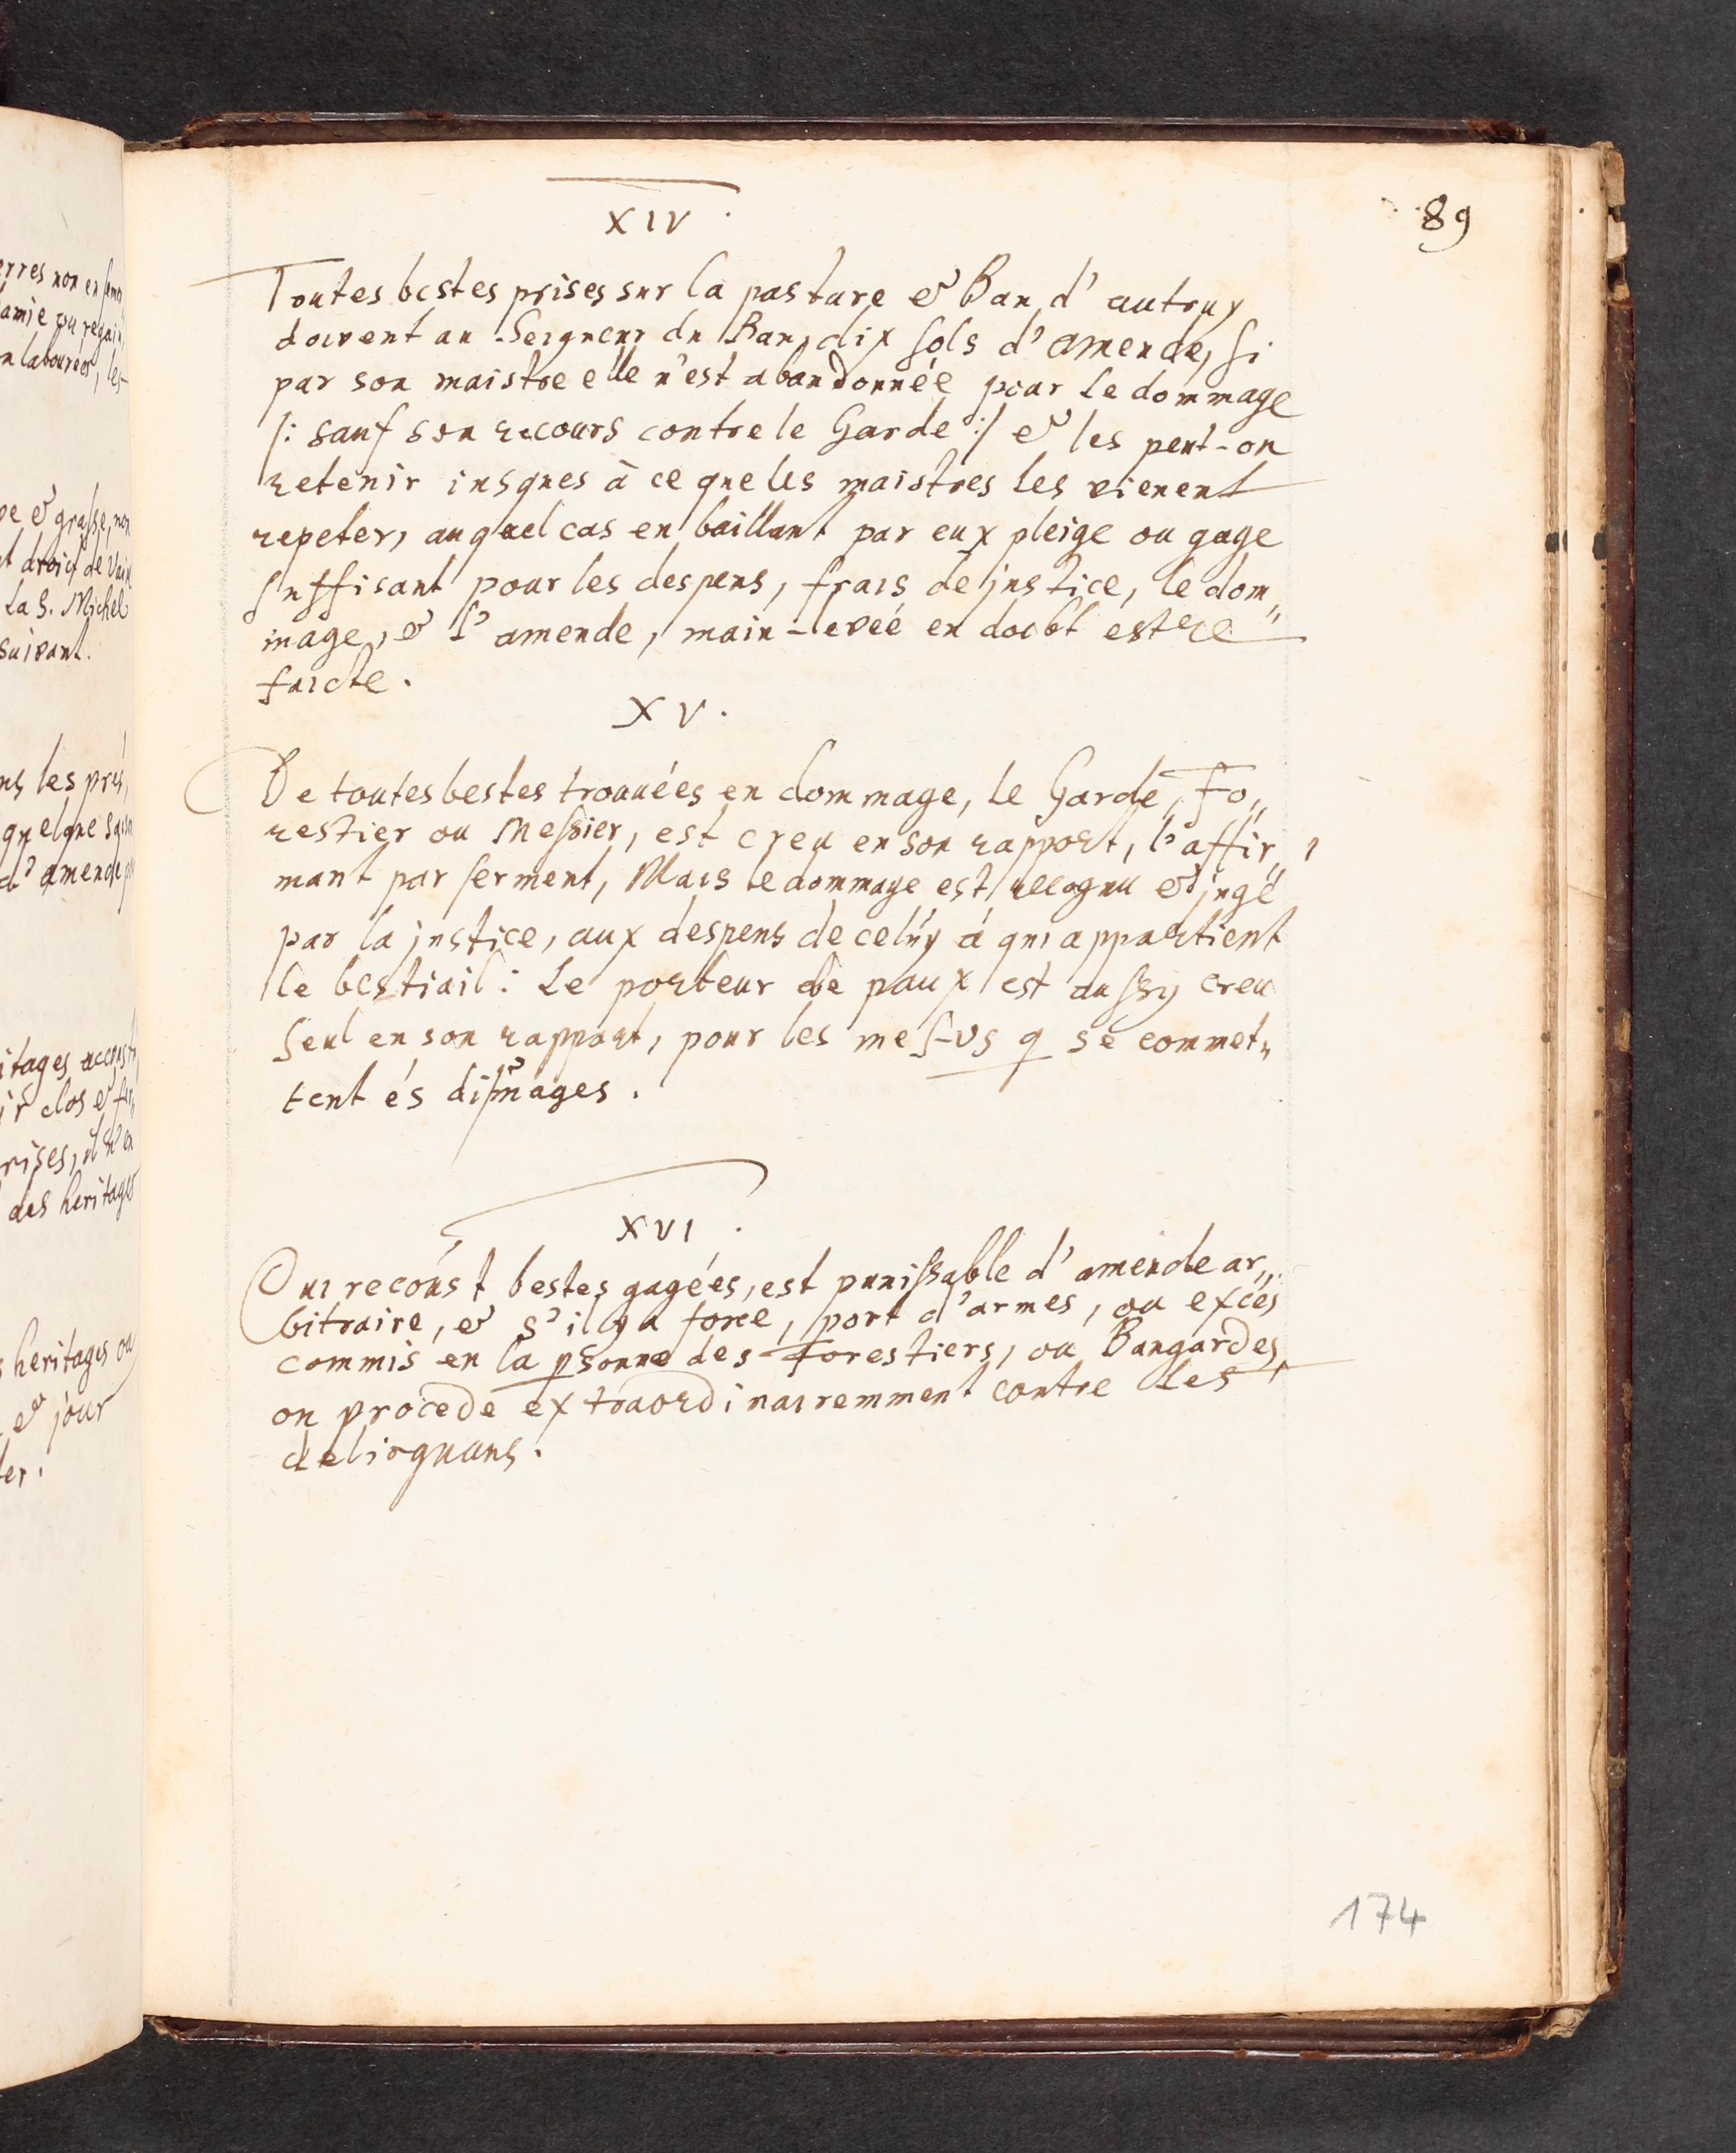 89
XIV.
Toutes bestes prises sur la pasture & Ban d'autruy
doivent au Seigneur du Ban, dix sols d'amende, si
par son maistre elle n'est abandonnée pour le dommage
/: sauf son recours contre le Garde :/ & les peut-on
retenir iusques à ce que les maistres les vienent
repeter, auquel cas en baillant par eux pleige ou gage
suffisant pour les despens, frais de justice, le dom„
mage, & l'amende, main-levée en doibt estre
faicte.
XV.
De toutes bestes trouuées en dommage, le Garde, Fo„
restier ou Messier, est creu en son rapport, l'affir„
mant par serment, Mais le dommage est recognu & jugé
par la justice, aux despens de celuy à qui appartient
le bestiail: Le porteur de paux est aussy creu
seul en son rapport, pour les mes-vs q se commet„
tent és dismages.
XVI.
Qui recoust bestes gagées, est punissable d'amende ar„
bitraire, & s'il y a force, port d'armes, ou excés
commis en la psonne des Forestiers, ou Bangardes,
on procede extraordinairemment contre les
delinquans.
174
erres non en
ou regain,
n labourées, les
& grasse, non
droict de Vain
La S. Michel
suivant.
ns les prés,
quelque
d'amende
itages
ir clos &
rises, il n'en
des heritages
heritages ou
& jour